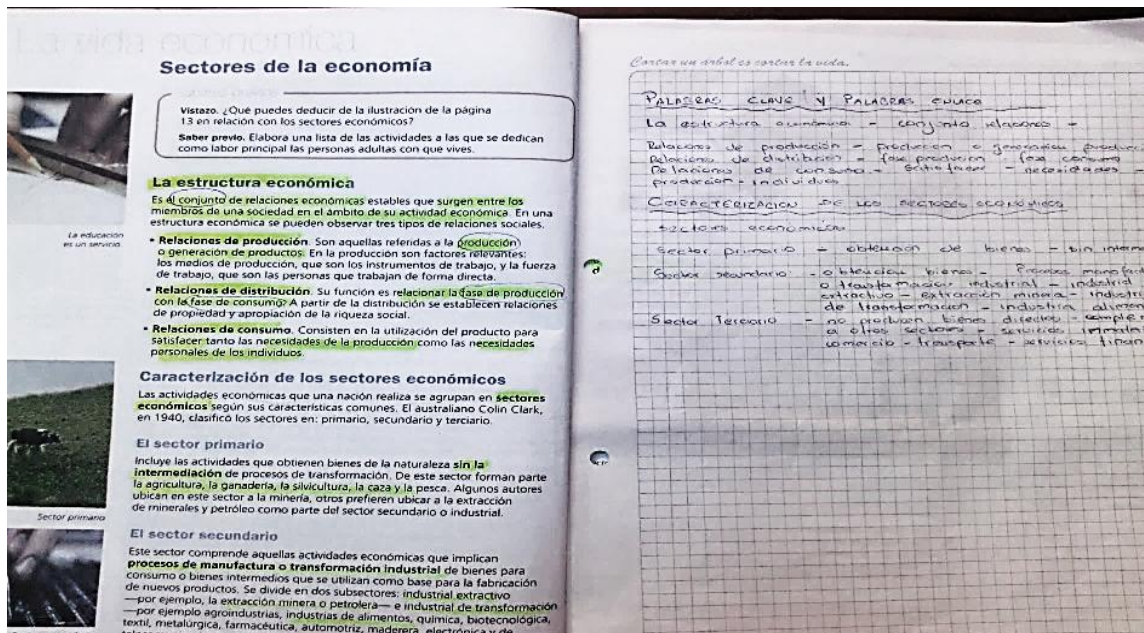 La vida económica
Sectores de la economía
Vistazo. ¿Qué puedes deducir de la ilustración de la página
13 en relación con los sectores económicos?
Saber previo. Elabora una lista de las actividades a las que se dedican
como labor principal las personas adultas con que vives.
La estructura económica
Es el conjunto de relaciones económicas estables que surgen entre los
miembros de una sociedad en el ámbito de su actividad económica. En una
estructura económica se pueden observar tres tipos de relaciones sociales.
La educación
es un servicio.
• Relaciones de producción. Son aquellas referidas a la producción
o generación de productos. En la producción son factores relevantes:
los medios de producción, que son los instrumentos de trabajo, y la fuerza
de trabajo, que son las personas que trabajan de forma directa.
• Relaciones de distribución. Su función es relacionar la fase de producción
con la fase de consumo. A partir de la distribución se establecen relaciones
de propiedad y apropiación de la riqueza social.
• Relaciones de consumo. Consisten en la utilización del producto para
satisfacer tanto las necesidades de la producción como las necesidades
personales de los individuos.
Caracterización de los sectores económicos
Las actividades económicas que una nación realiza se agrupan en sectores
económicos según sus características comunes. El australiano Colin Clark,
en 1940, clasificó los sectores en: primario, secundario y terciario.
El sector primario
Incluye las actividades que obtienen bienes de la naturaleza sin la
intermediación de procesos de transformación. De este sector forman parte
la agricultura, la ganadería, la silvicultura, la caza y la pesca. Algunos autores
ubican en este sector a la minería, otros prefieren ubicar a la extracción
de minerales y petróleo como parte del sector secundario o industrial.
Sector primario
El sector secundario
Este sector comprende aquellas actividades económicas que implican
procesos de manufactura o transformación industrial de bienes para
consumo o bienes intermedios que se utilizan como base para la fabricación
de nuevos productos. Se divide en dos subsectores: industrial extractivo
—por ejemplo, la extracción minera o petrolera— e industrial de transformación
—por ejemplo agroindustrias, industrias de alimentos, química, biotecnológica,
textil, metalúrgica, farmacéutica, automotriz, maderera, electrónica y de
Cortar un arbol es cortar la vida.
PALABRAS CLAVE Y PALABRAS ENLACE
La estructura económica - conjunto relaciones -
Relaciones de producción - producción o generación
Relaciones de distribución - fase producción - fase consumo
Relaciones de consumo - satisfacer - necesidades -
producción - individuos
CARACTERIZACION DE LOS SECTORES ECONÓMICOS
Sectores económicos
Sector primario - obtención de bienes - sin
Sector secundario - obtención bienes - Procesos
o trasformación industrial - industrial
extractivo - extracción minera -
de transformación - industria
Sector Terciario - no producen bienes directos -
a otros sectores - servicios
comercio - transporte - servicios